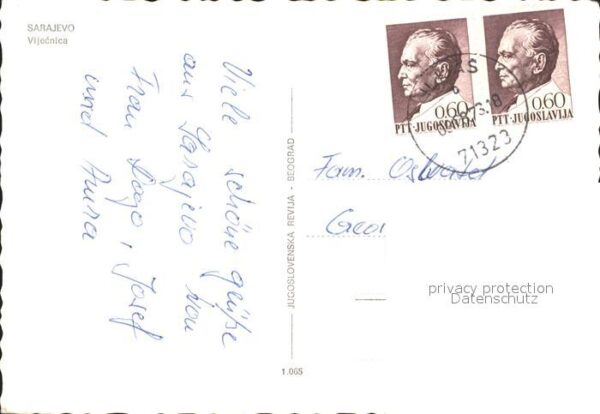 SARAJEVO
Vijećnica
Viele schöne grüße
aus Sarajevo von
Fran Lazo, Josef
und Anna
JUGOSLOVENSKA REVIJA - BEOGRAD
1.065
0.60
PTT·JUGOSLAVIJA
0.60
PTT·JUGOSLAVIJA
71323
Fam.
privacy protection
Datenschutz